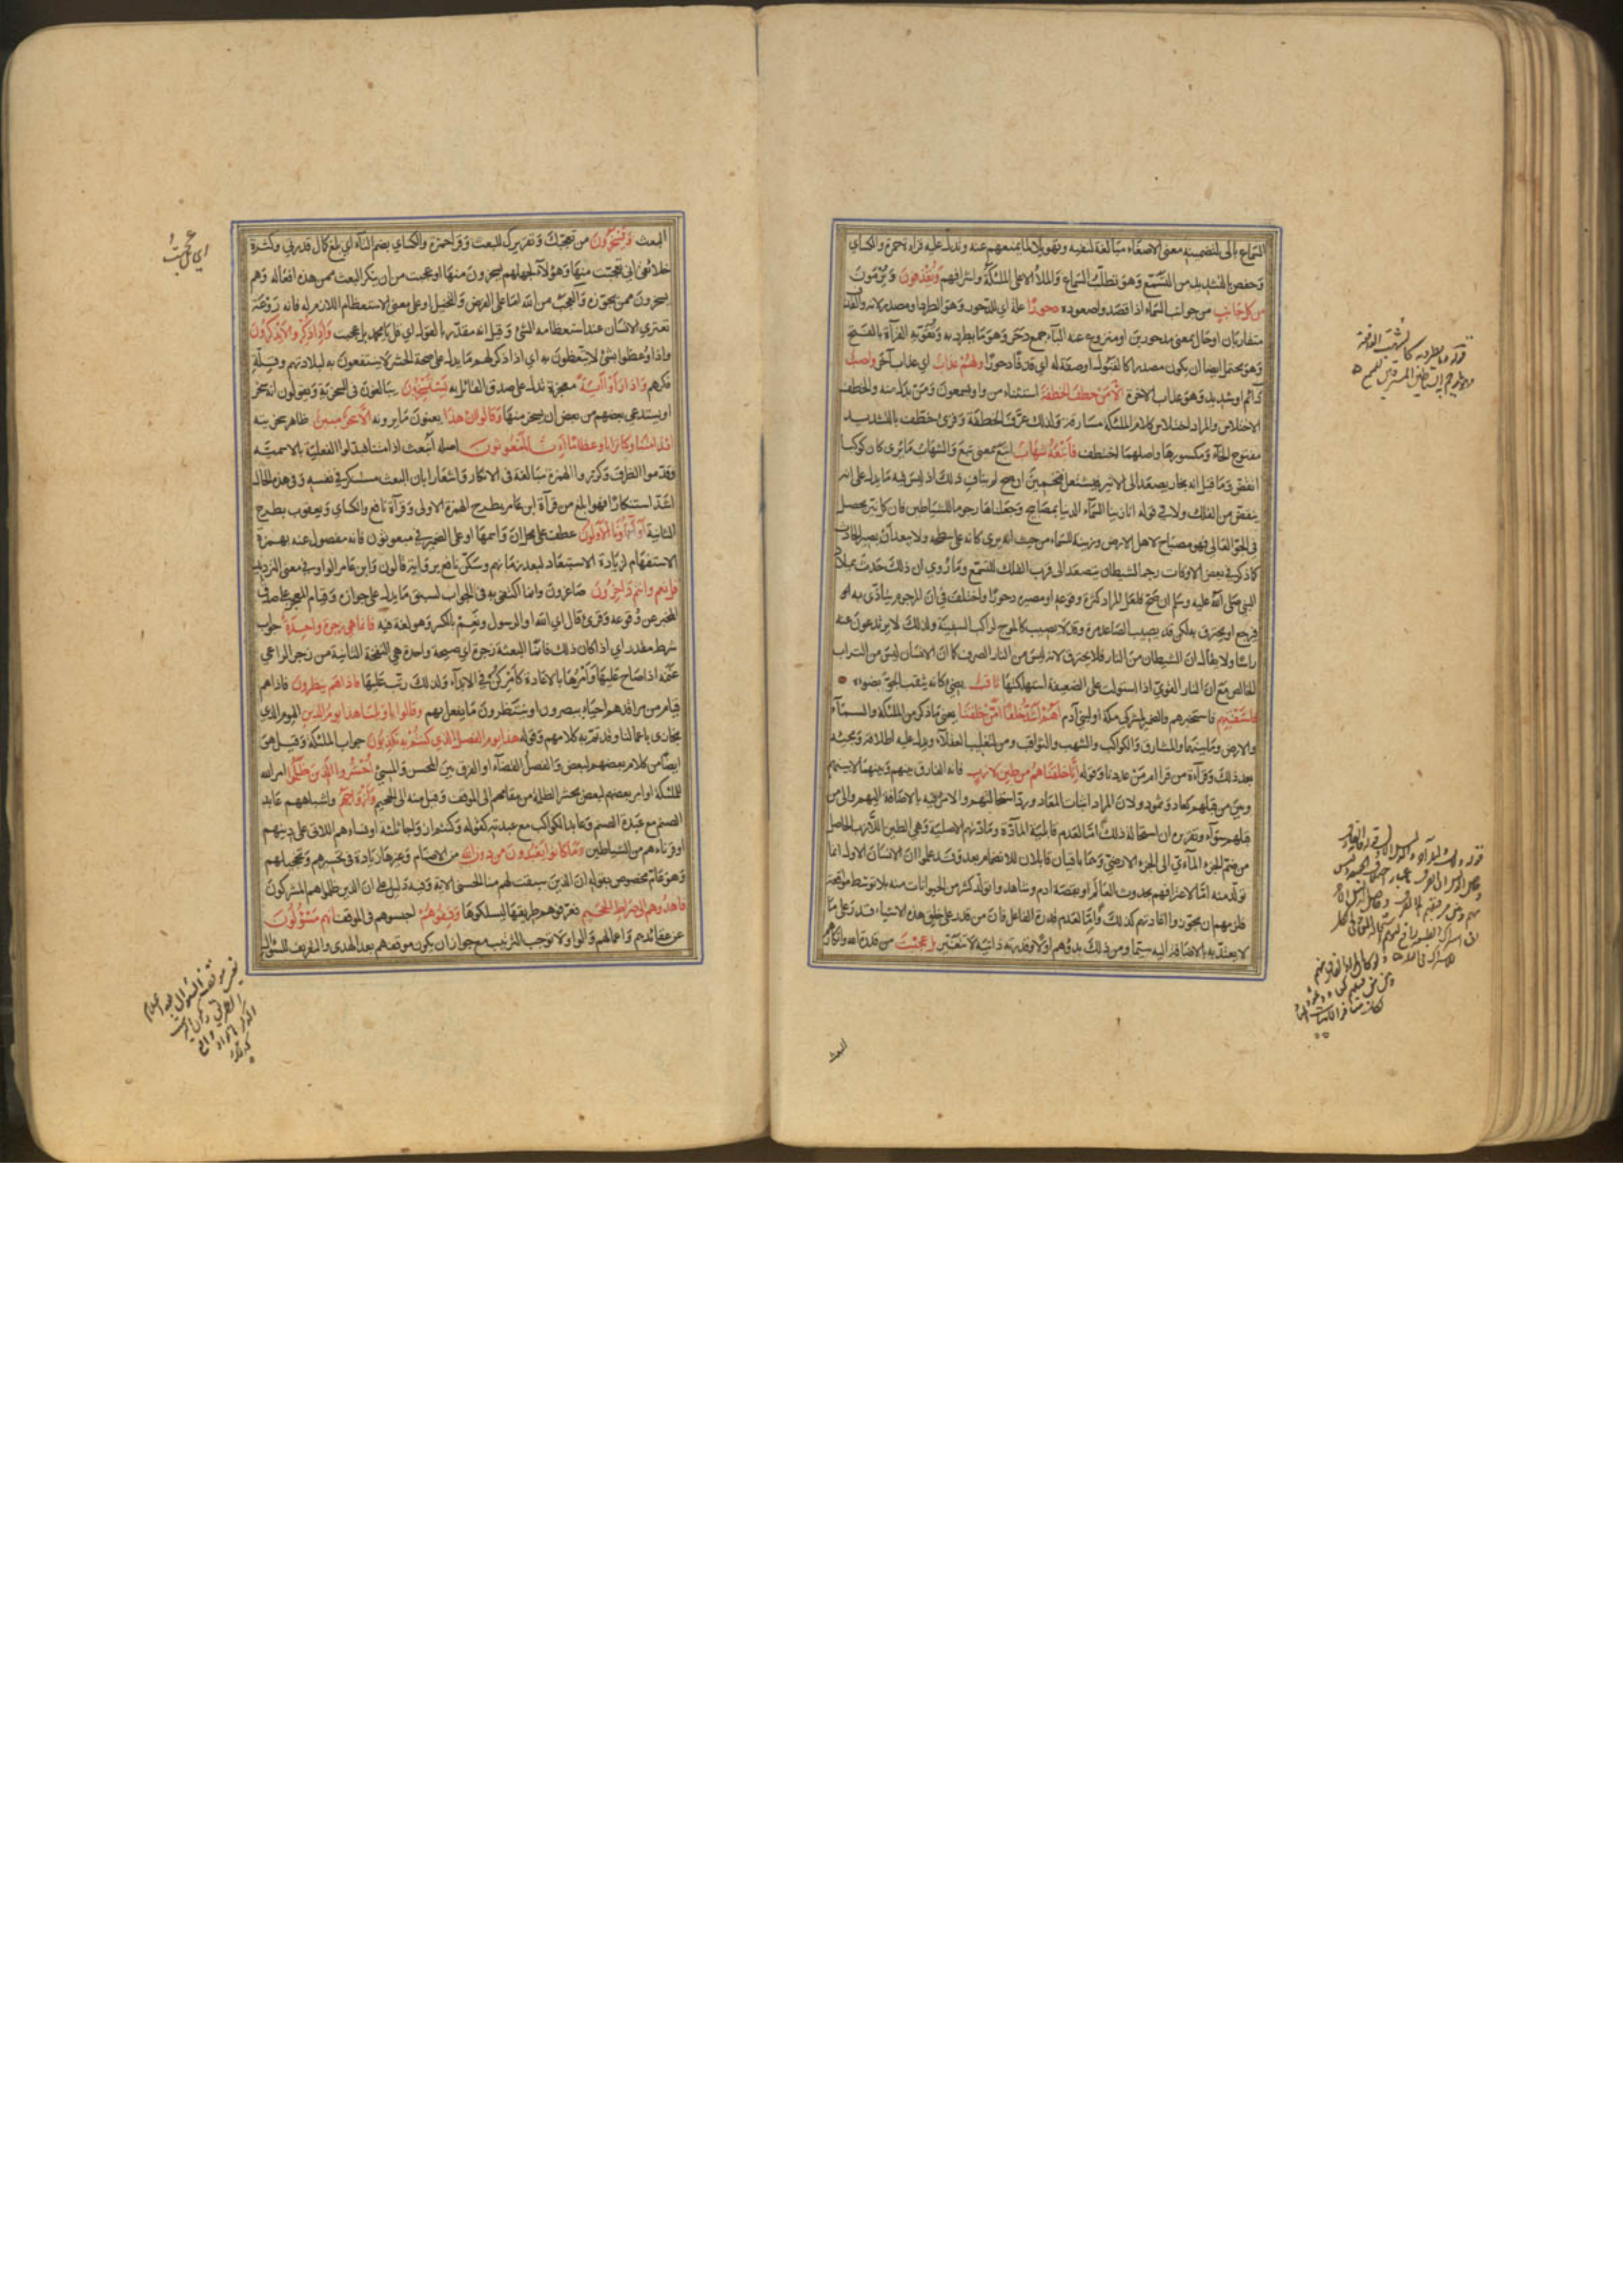 السماع بالى لتضمينه معنى الاصغاء مبالغة لنفيه وتهويلا لما يمنعهم عنه ويدل عليه قراءة حمزة والكسائي
وحفص بالتشديد من التسمع وهو تطلب السماع والملأ الاعلى الملئكة واشرافهم ويقذفون ويرمون
من كل جانب من جوانب السماء اذا قصدوا صعوده دحورا علة اي للدحور وهو الطرد او مصدر لانه والقذف
متقاربان او حال بمعنى مدحورين او منزوع عنه الباء جمع دحر وهو ما يطرد به ويقويه القراءة بالفتح
وهو يحتمل ايضا ان يكون مصدرا كالقبول او صفة له اي قذفا دحورا ولهم عذاب اي عذاب آخر واصب
دائم او شديد وهو عذاب الآخرة الا من خطف الخطفة استثناء من واو يسمعون ومن بدل منه والخطف
الاختلاس والمراد اختلاس كلام الملئكة مسارقة ولذلك عرف الخطفة وقرئ خطف بالتشديد
مفتوح الخاء ومكسورها واصلهما اختطف فأتبعه شهاب اتبع بمعنى تبع والشهاب ما يرى كان كوكبا
انقض وما قيل انه بخار يصعد الى الاثير فيشتعل فتخمين ان صح لم يناف ذلك اذ ليس فيه ما يدل على انه
ينقض من الفلك ولا في قوله انا زينا السماء الدنيا بمصابيح وجعلناها رجوما للشياطين فان كل نير يحصل
في الجو العالي فهو مصباح لاهل الارض وزينة للسماء من حيث انه يرى كانه على سطحه ولا يبعد ان يصير الحادث
كما ذكر في بعض الاوقات رجما لشيطان يتصعد الى قرب الفلك للتسمع وما روي ان ذلك حدث بميلاد
النبي صلى الله عليه وسلم ان صح فلعل المراد كثرة وقوعه او مصيره دحورا واختلف في ان المرجوم يتأذى به
فيرجع او يحترق به لكن قد يصيب الصاعد مرة وقد لا يصيب كالموج لراكب السفينة ولذلك لا يرتدعون عنه
رأسا ولا يقال ان الشيطان من النار فلا يحترق لانه ليس من النار الصرف كما ان الانسان ليس من التراب
الخالص مع ان النار القوية اذا استولت على الضعيفة استهلكتها ثاقب مضيء كانه يثقب الجو بضوءه
فاستفتهم فاستخبرهم والضمير لمشركي مكة او لبني آدم أهم أشد خلقا ام من خلقنا يعني ما ذكر من الملئكة والسماء
والارض وما بينهما والمشارق والكواكب والشهب والثواقب ومن لتغليب العقلاء ويدل عليه اطلاقه ومجيئه
بعد ذلك وقراءة من قرأ ام من عددنا وقوله انا خلقناهم من طين لازب فانه الفارق بينهم وبينها لا بينهم
وبين من قبلهم كعاد وثمود ولان المراد اثبات المعاد ورد استحالتهم والامر فيه بالاضافة اليهم والى من
قبلهم سواء وتقريره ان استحالة ذلك اما لعدم قابلية المادة ومادتهم الاصلية وهي الطين اللازب الحاصل
من ضم الجزء المائي الى الجزء الارضي وهما باقيان قابلان للانضمام بعد وقد علموا ان الانسان الاول انما
تولد منه اما لاعترافهم بحدوث العالم او بقصة آدم وشاهدوا تولد كثير من الحيوانات منه بلا توسط مواقعة
فلزمهم ان يجوزوا اعادتهم كذلك واما لعدم قدرة الفاعل فان من قدر على خلق هذه الاشياء قدر على ما
لا يعتد به بالاضافة اليه سيما ومن ذلك بدؤهم اولا وقدرته ذاتية لا تتغير بل عجبت من قدرة الله وانكار
البعث
البعث ويسخرون من تعجبك وتقريرك للبعث وقرأ حمزة والكسائي بضم التاء اي بلغ كمال قدرتي وكثرة
خلائقي اني تعجبت منها وهؤلاء لجهلهم يسخرون منها او عجبت من ان ينكر البعث ممن هذه افعاله وهم
يسخرون ممن يجوزه والعجب من الله اما على الفرض والتخييل او على معنى الاستعظام اللازم له فانه روعة
تعتري الانسان عند استعظامه الشئ وقيل انه مقدر بالقول اي قل يا محمد بل عجبت واذا ذكروا لا يذكرون
واذا وعظوا بشئ لا يتعظون به اي اذا ذكر لهم ما يدل على صحة الحشر لا ينتفعون به لبلادتهم وقلة
فكرهم واذا رأوا آية معجزة تدل على صدق القائل به يستسخرون يبالغون في السخرية ويقولون انه سحر
او يستدعي بعضهم من بعض ان يسخر منها وقالوا ان هذا يعنون ما يرونه الا سحر مبين ظاهر سحريته
ائذا متنا وكنا ترابا وعظاما ائنا لمبعوثون اصله انبعث اذا متنا فبدلوا الفعلية بالاسمية
وقدموا الظرف وكرروا الهمزة مبالغة في الانكار واشعارا بان البعث مستنكر في نفسه وفي هذه الحال
اشد استنكارا فهو ابلغ من قراءة ابن عامر بطرح الهمزة الاولى وقراءة نافع والكسائي ويعقوب بطرح
الثانية أوآباؤنا الاولون عطف على محل ان واسمها او على الضمير في مبعوثون فانه مفصول عنه بهمزة
الاستفهام لزيادة الاستبعاد لبعد زمانهم وسكن نافع برواية قالون وابن عامر الواو في معنى الترديد
قل نعم وانتم داخرون صاغرون وانما اكتفى به في الجواب لسبق ما يدل على جوازه وقيام المعجز على صدق
المخبر عن وقوعه وقرئ قال اي الله او الرسول ونعم بالكسر وهو لغة فيه فانما هي زجرة واحدة جواب
شرط مقدر اي اذا كان ذلك فانما البعثة زجرة اي صيحة واحدة هي النفخة الثانية من زجر الراعي
غنمه اذا صاح عليها وامرها بالاعادة كأمر كن في الابداء ولذلك رتب عليها فاذا هم ينظرون فاذا هم
قيام من مراقدهم احياء يبصرون او ينتظرون ما يفعل بهم وقالوا يا ويلنا هذا يوم الدين اليوم الذي
يجازى باعمالنا وقد تم به كلامهم وقوله هذا يوم الفصل الذي كنتم به تكذبون جواب الملئكة وقيل هو
ايضا من كلام بعضهم لبعض والفصل القضاء او الفرق بين المحسن والمسئ احشروا الذين ظلموا امر الله
للملئكة او امر بعضهم لبعض بحشر الظلمة من مقامهم الى الموقف وقيل منه الى الجحيم وازواجهم واشباههم عابد
الصنم مع عبدة الصنم وعابد الكواكب مع عبدته كقوله وكنتم ازواجا ثلثة او نساءهم اللاتي على دينهم
او قرناءهم من الشياطين وما كانوا يعبدون من دون الله من الاصنام وغيرها زيادة في تحسيرهم وتخجيلهم
وهو عام مخصوص بقوله ان الذين سبقت لهم منا الحسنى الآية وفيه دليل على ان الذين ظلموا هم المشركون
فاهدوهم الى صراط الجحيم فعرفوهم طريقها ليسلكوها وقفوهم احبسوهم في الموقف انهم مسؤولون
عن عقائدهم واعمالهم والواو لا توجب الترتيب مع جواز ان يكون موقفهم بعد الهدى والتعريف للسؤال